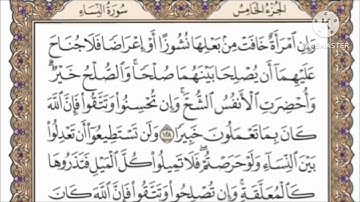 الجزء الخامس
سورة النساء
وَإِنِ ٱمْرَأَةٌ خَافَتْ مِنۢ بَعْلِهَا نُشُوزًا أَوْ إِعْرَاضًا فَلَا جُنَاحَ
عَلَيْهِمَآ أَن يُصْلِحَا بَيْنَهُمَا صُلْحًا ۚ وَٱلصُّلْحُ خَيْرٌ ۗ
وَأُحْضِرَتِ ٱلْأَنفُسُ ٱلشُّحَّ ۚ وَإِن تُحْسِنُوا۟ وَتَتَّقُوا۟ فَإِنَّ ٱللَّهَ
كَانَ بِمَا تَعْمَلُونَ خَبِيرًا ١٢٨ وَلَن تَسْتَطِيعُوٓا۟ أَن تَعْدِلُوا۟
بَيْنَ ٱلنِّسَآءِ وَلَوْ حَرَصْتُمْ ۖ فَلَا تَمِيلُوا۟ كُلَّ ٱلْمَيْلِ فَتَذَرُوهَا
كَٱلْمُعَلَّقَةِ ۚ وَإِن تُصْلِحُوا۟ وَتَتَّقُوا۟ فَإِنَّ ٱللَّهَ كَانَ